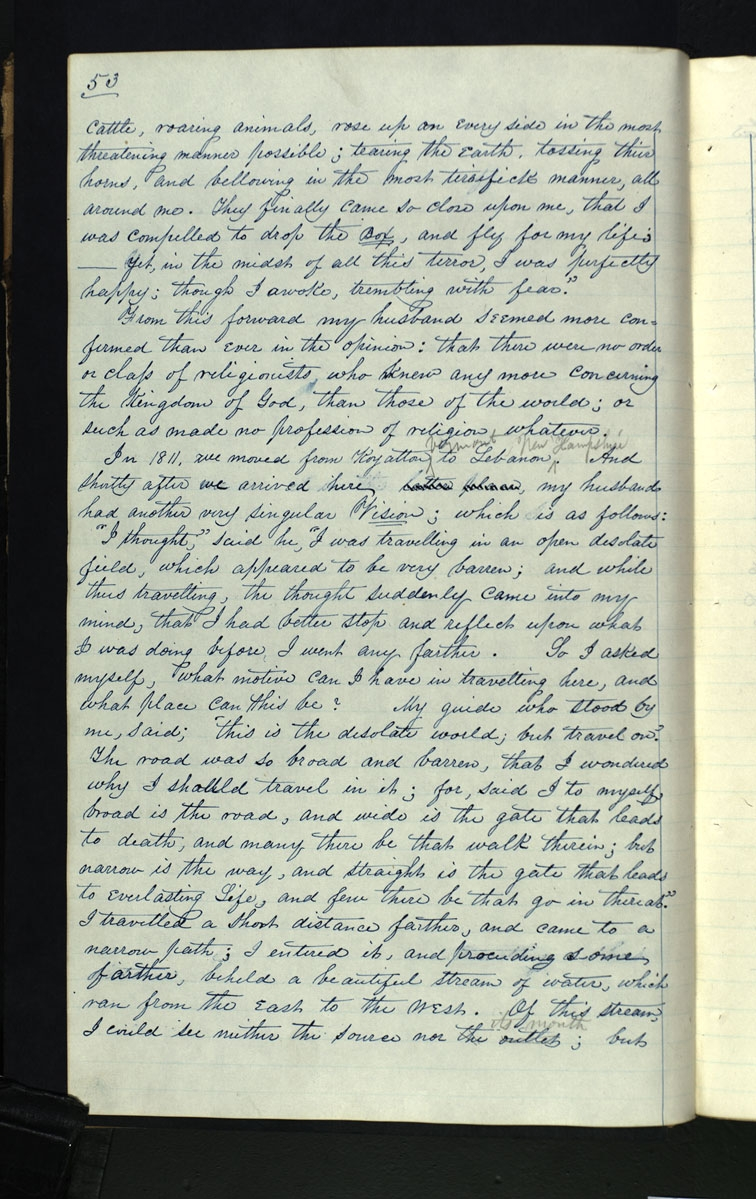 53
cattle, roaring animals, rose up on every side in the most
threatening manner possible; tearing the Earth, tossing thier
horns, and bellowing in the most terrifick manner, all
around me. They finally came so close upon me, that I
was compelled to drop the Box, and fly for my life;
— Yet, in the midst of all this terror, I was perfectly
happy; though I awoke, trembling with fear."
From this forward my husband seemed more con=
firmed than ever in the opinion: that there were no order
or class of religionists, who knew any more concerning
the Kingdom of God, than those of the world; or
such as made no profession of religion whatever.
Vermont New Hampshire
In 1811, we moved from Royalton, to Lebanon, And
shortly after we arrived here latter place, my husband
had another very singular Vision; which is as follows:
"I thought," said he, "I was travelling in an open desolate
field, which appeared to be very barren; and while
thus travelling, the thought suddenly came into my
mind, that I had better stop and reflect upon what
I was doing before, I went any farther. So I asked
myself, "what motive can I have in travelling here, and
what place can this be? My guide who stood by
me, said; "this is the desolate world; but travel on."
The road was so broad and barren, that I wondered
why I should travel in it; for, said I to myself,
broad is the road, and wide is the gate that leads
to death, and many there be that walk therein; but
narrow is the way, and straight is the gate that leads
to Everlasting Life, and few there be that go in thereat."
I travelled a short distance farther, and came to a
narrow path; I entered it, and proceeding some
farther, beheld a beautiful stream of water, which
ran from the East to the West. Of this stream,
its mouth
I could see neither the source nor the outlet; but